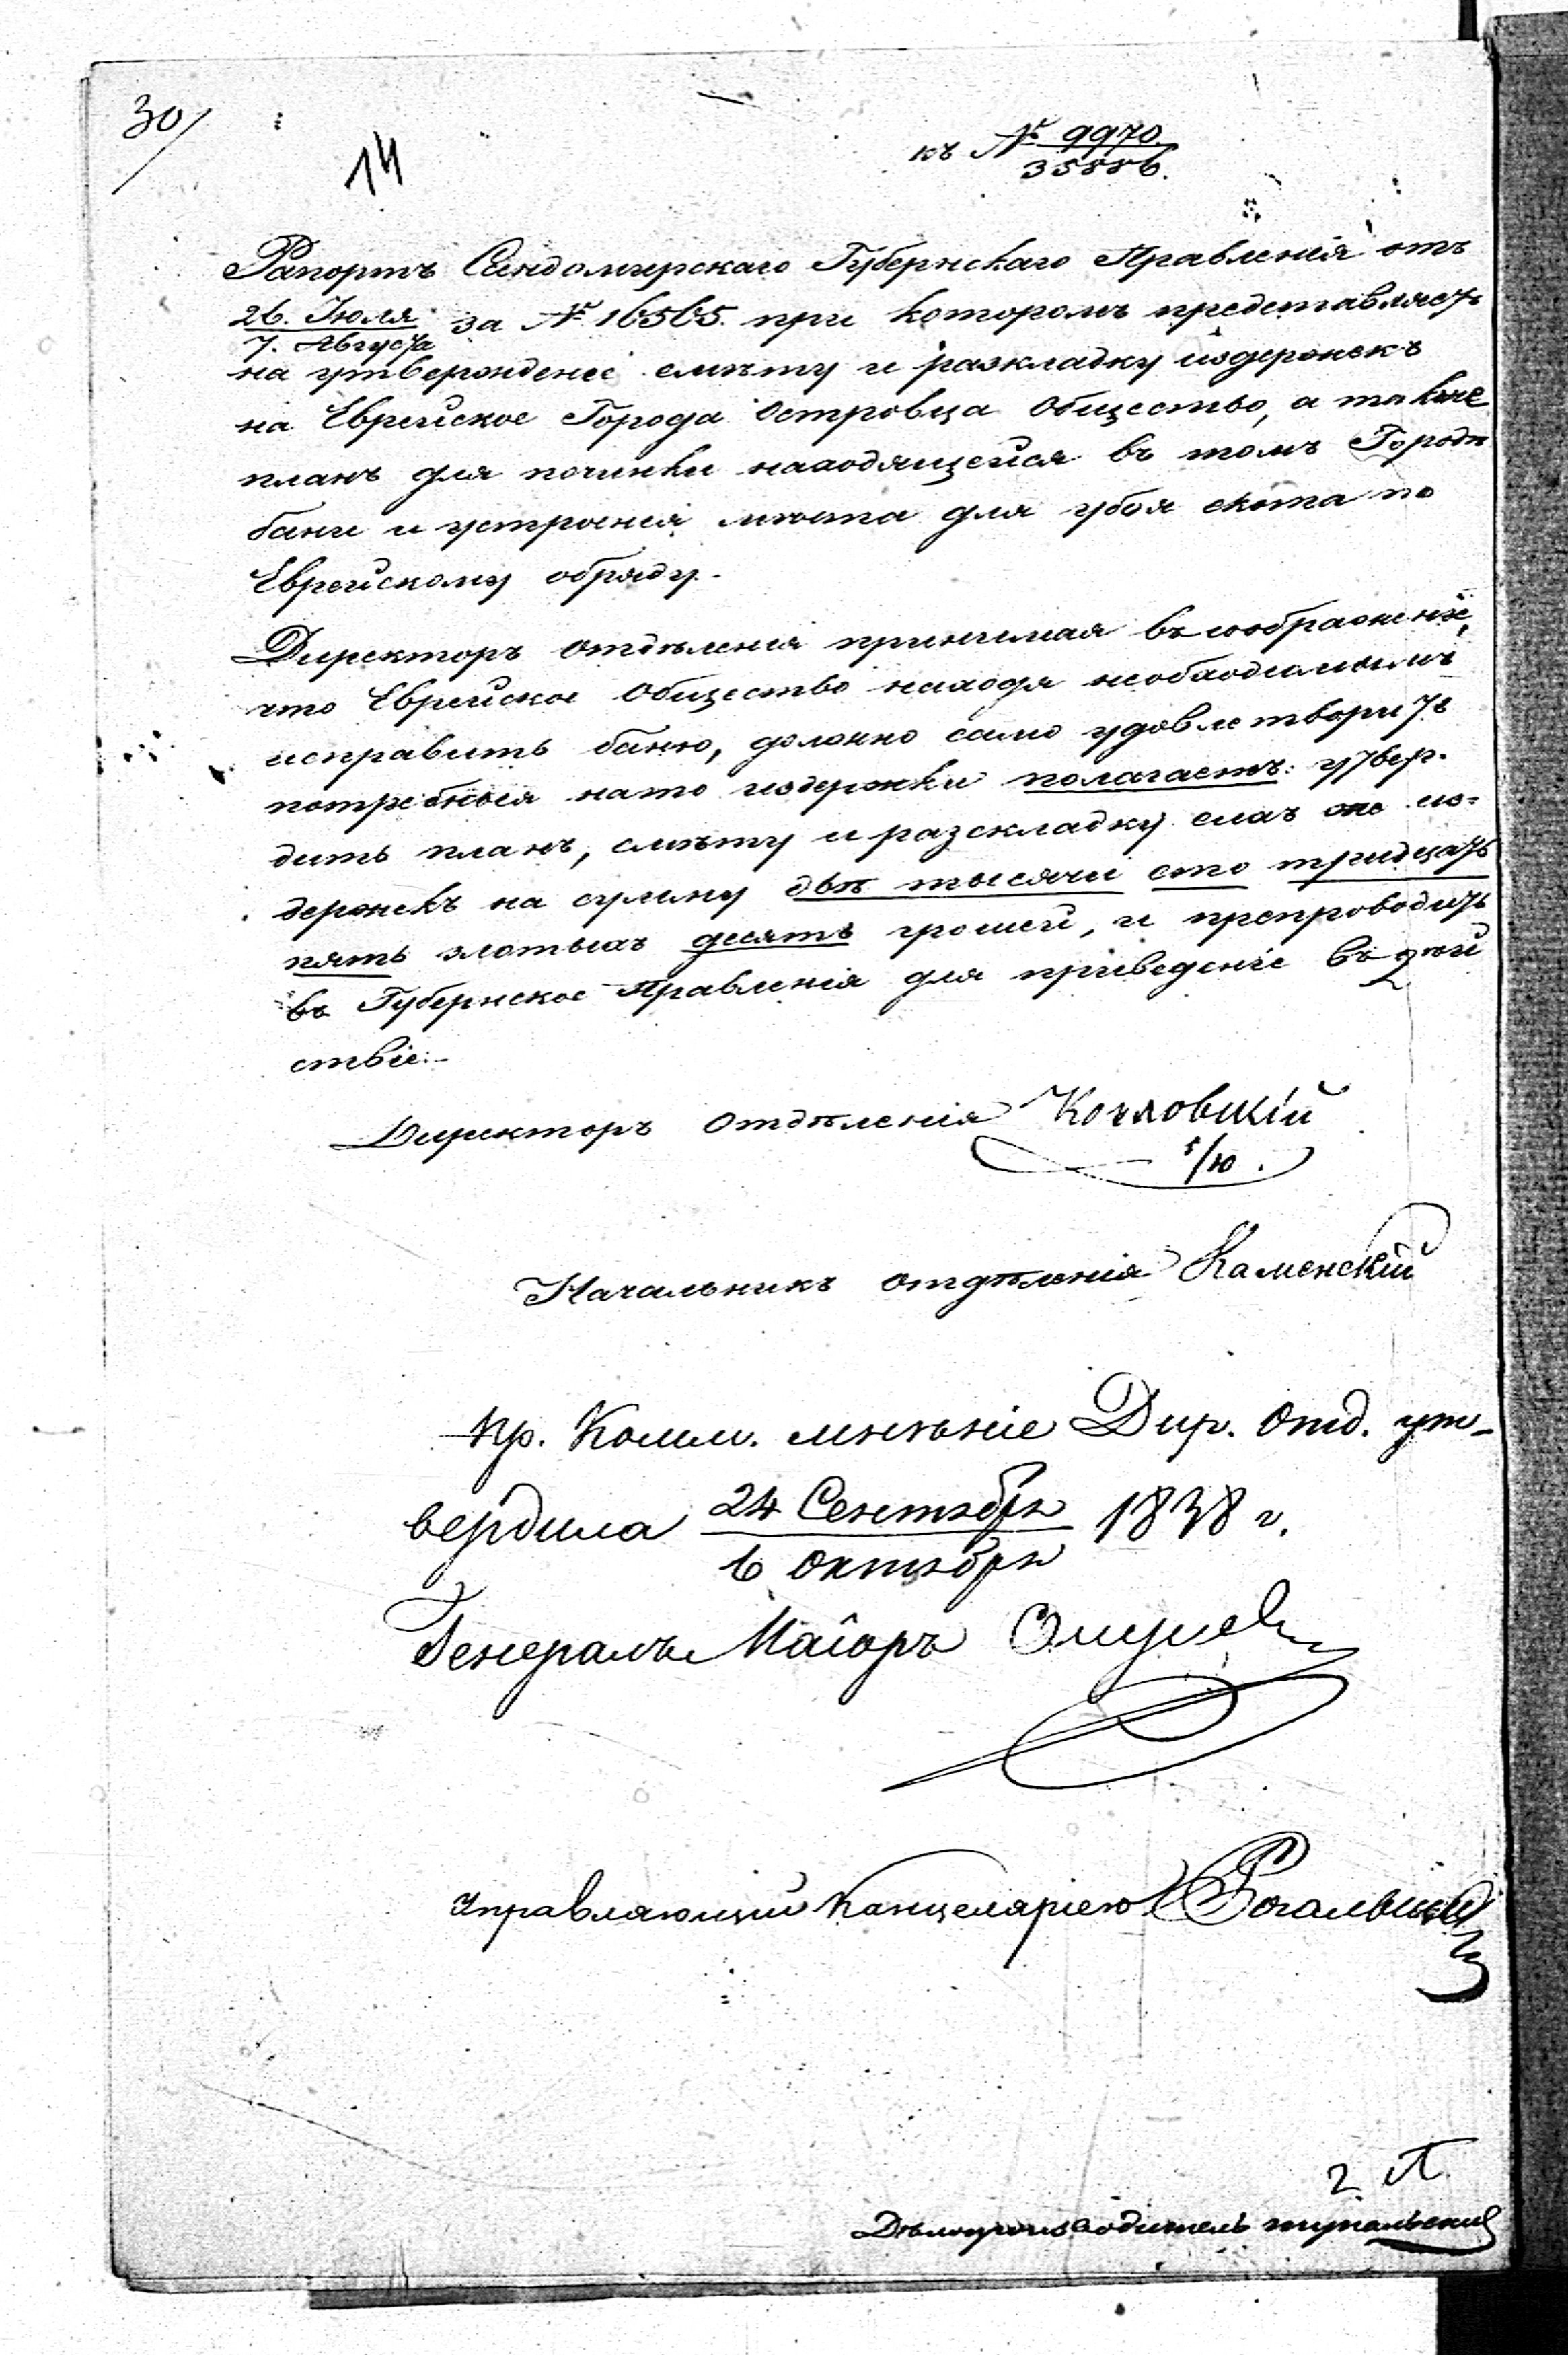 30/
14
къ № 9970
35886.
Рапортъ Сандомирскаго Губернскаго Правленія отъ
26. Іюля
7. Августа
за № 16565. при которомъ представляетъ
на утвержденіе смѣту и разкладку издержекъ
на Еврейское Города Островца Общество, а также
планъ для починки находящейся въ томъ Городѣ
бани и устроенія мѣста для убоя скота по
Еврейскому обряду.-
Директоръ отдѣленія принимая въ соображеніе,
что Еврейское Общество находя необходимымъ
исправить баню, должно само удовлетворить
потребныя на то издержки полагаетъ: утвер-
дить планъ, смѣту и разскладку сихъ же из=
держекъ на сумму двѣ тысячи сто тридцать
пять злотыхъ десять грошей, и препроводить
въ Губернское Правленія для приведеніе въ дѣй
ствіе:-
Директоръ Отдѣленія
5/10.
Начальникъ отдѣленія Каменскій
Пр. Комм. мнѣніе Дир. Отд. ут-
вердила 24 Сентября 1838 г.
6 Октября
Генералъ Маіоръ
Управляющій Канцеляріею
2 Л.
Дѣлопроизводитель